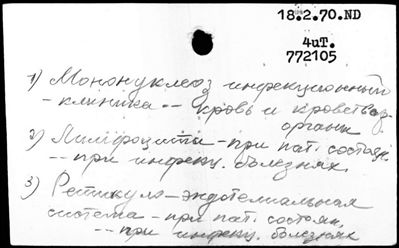 18.2.70.ND
4uT.
772105
1) Мононуклеоз инфекционный
- клиника -- кровь и кроветвор.
органы
2) Лимфоциты - при пат. состоян.
-- при инфекц. болезнях.
3) Ретикуло-эндотелиальная
система - при пат. состоян.
-- при инфекц. болезнях